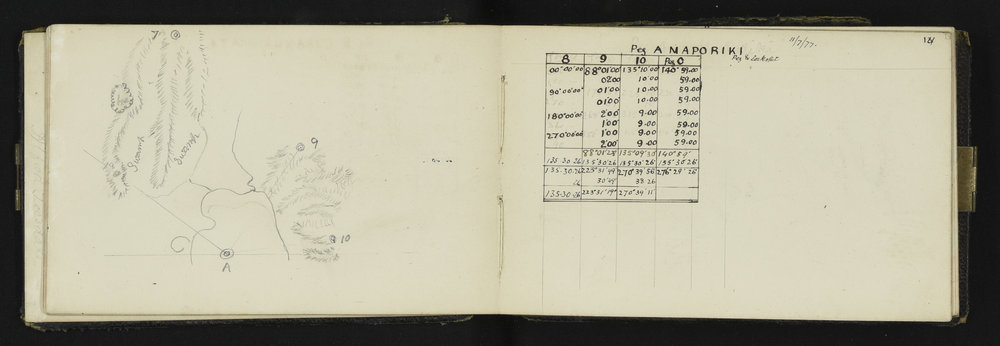 7
8
9
10
A
11/7/77.
121
Peg A NAPORIKI
8 9 10 Peg O
00°00'00 88°01'00 135°10'00 140°59.00
02.00 10.00 59.00
90°00'00" 01'00 10.00 59.00
01'00 10.00 59.00
180°00'00" 2'00 9.00 59.00
1'00 9.00 59.00
270°00'00 1'00 9.00 59.00
2'00" 9.00 59.00
88°01'28 135°09'30 140°59'
135 30 26 135°30'26 135°30'26 135°30'26
135.30.26 223°31'49 270°39'56 276°29'26"
26 30'49 38.26
135.30.26 223°31'19" 270°39'11"